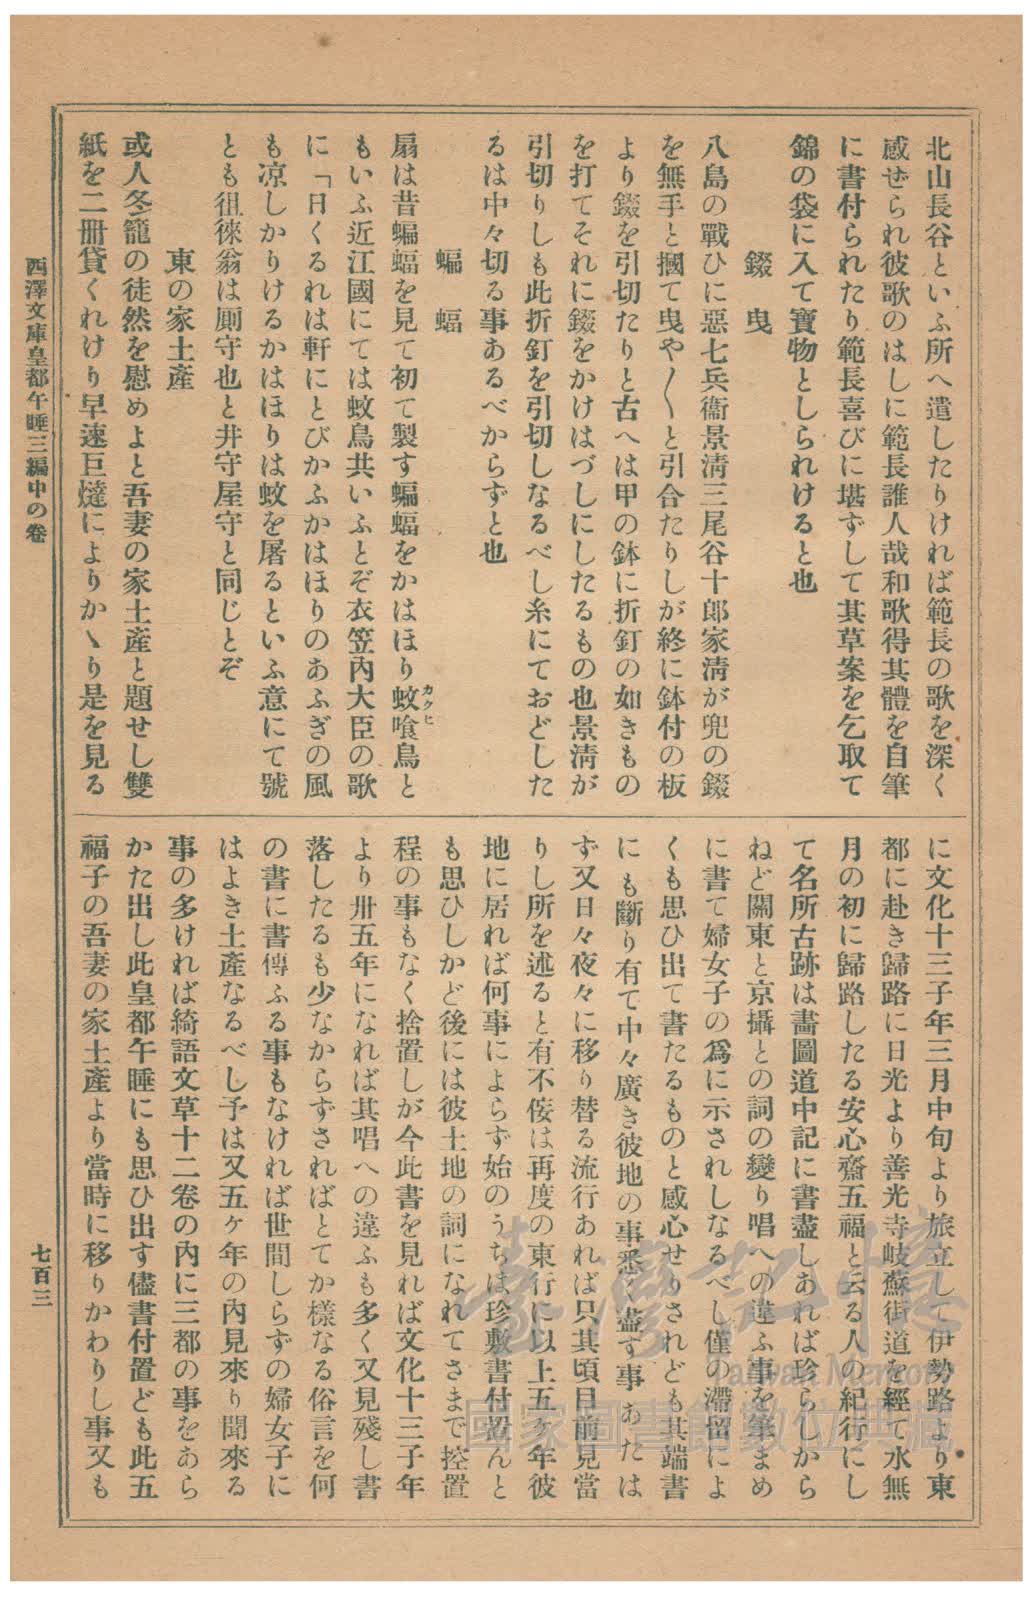 北山長谷といふ所へ遣したりければ範長の歌を深く
感ぜられ彼歌のはしに範長誰人哉和歌得其體を自筆
に書付られたり範長喜びに堪ずして其草案を乞取て
錦の袋に入て寶物としられけると也
錣曳
八島の戰ひに惡七兵衞景淸三尾谷十郎家淸が兜の錣
を無手と摑て曳や〳〵と引合たりしが終に鉢付の板
より錣を引切たりと古へは甲の鉢に折釘の如きもの
を打てそれに錣をかけはづしにしたるもの也景淸が
引切りしも此折釘を引切しなるべし糸にておどした
るは中々切る事あるべからずと也
蝙蝠
扇は昔蝙蝠を見て初て製す蝙蝠をかはほり蚊喰鳥と
カクヒ
もいふ近江國にては蚊鳥共いふとぞ衣笠內大臣の歌
に「日くるれは軒にとびかふかはほりのあふぎの風
も凉しかりけるかはほりは蚊を屠るといふ意にて號
とも徂徠翁は厠守也と井守屋守と同じとぞ
東の家土產
或人冬籠の徒然を慰めよと吾妻の家土產と題せし雙
紙を二冊貸くれけり早速巨燵によりかゝり是を見る
に文化十三子年三月中旬より旅立して伊勢路より東
都に赴き歸路に日光より善光寺岐蘇街道を經て水無
月の初に歸路したる安心齋五福と云る人の紀行にし
て名所古跡は畵圖道中記に書盡しあれば珍らしから
ねど關東と京攝との詞の變り唱への違ふ事を筆まめ
に書て婦女子の爲に示されしなるべし僅の滯留によ
くも思ひ出て書たるものと感心せりされども其端書
にも斷り有て中々廣き彼地の事悉く盡す事あたは
ず又日々夜々に移り替る流行あれば只其頃目前見當
りし所を述ると有不侫は再度の東行に以上五ケ年彼
地に居れば何事によらず始のうちは珍敷書付置んと
も思ひしかど後には彼土地の詞になれてさまで控置
程の事もなく捨置しが今此書を見れば文化十三子年
より卅五年になれば其唱への違ふも多く又見殘し書
落したるも少なからずさればとてか樣なる俗言を何
の書に書傳ふる事もなければ世間しらずの婦女子に
はよき土產なるべし予は又五ケ年の內見來り聞來る
事の多ければ綺語文草十二卷の內に三都の事をあら
かた出し此皇都午睡にも思ひ出す儘書付置ども此五
福子の吾妻の家土產より當時に移りかわりし事又も
西澤文庫皇都午睡三編中の卷
七百三
臺灣記憶
Taiwan Memory
國家圖書館數位典藏